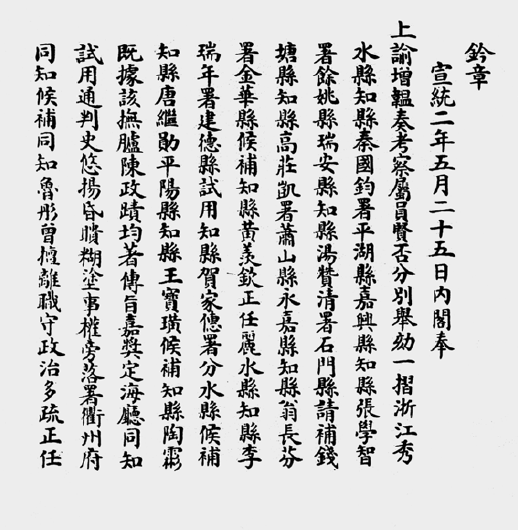 鈐章
宣統二年五月二十五日內閣奉
上諭增韞奏考察屬員賢否分別舉劾一摺浙江秀
水縣知縣秦國鈞署平湖縣嘉興縣知縣張學智
署餘姚縣瑞安縣知縣湯贊清署石門縣請補錢
塘縣知縣高莊凱署蕭山縣永嘉縣知縣翁長芬
署金華縣候補知縣黃羨欽正任麗水縣知縣李
瑞年署建德縣試用知縣賀家僡署分水縣候補
知縣唐繼勛平陽縣知縣王寶璜候補知縣陶霦
既據該撫臚陳政蹟均著傳旨嘉獎定海廳同知
試用通判史悠揚昏瞶糊塗事權旁落署衢州府
同知候補同知魯彤曾擅離職守政治多疏正任